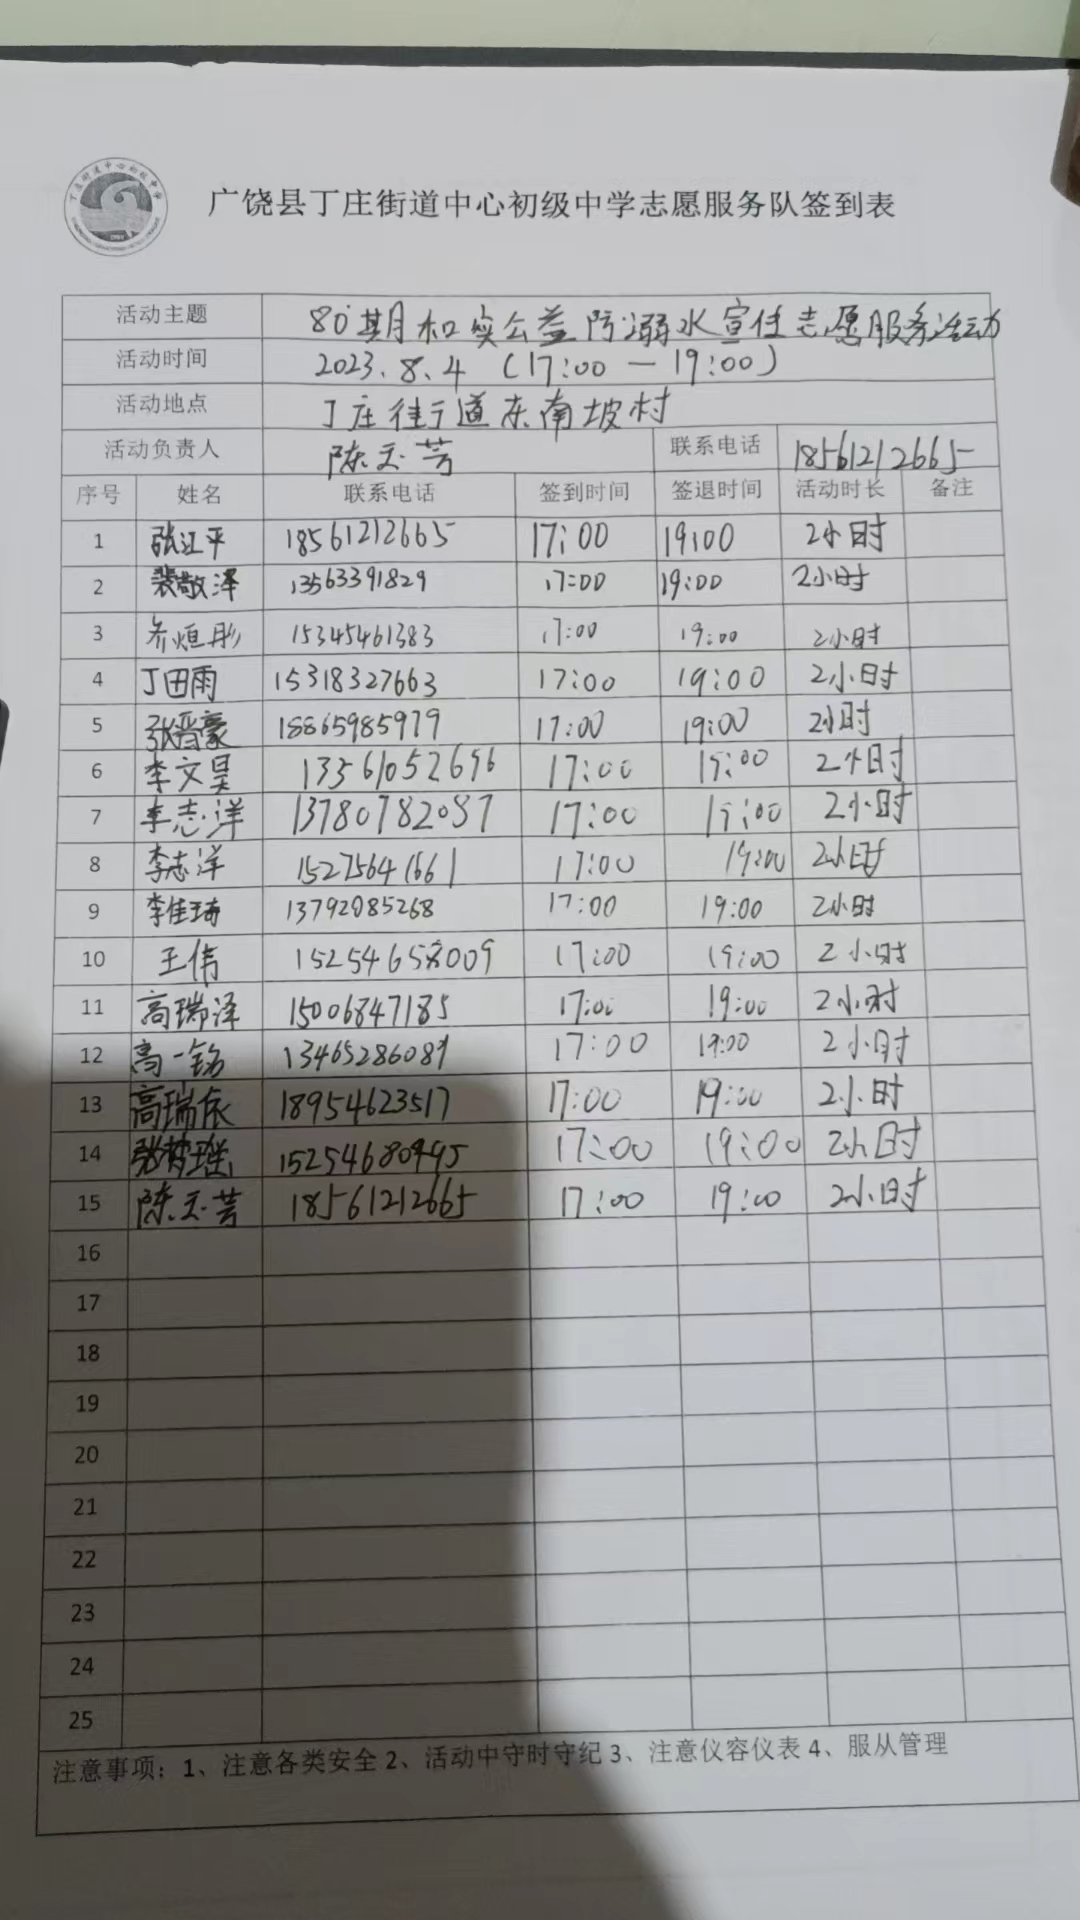 广饶县丁庄街道中心初级中学志愿服务队签到表
活动主题 80期和实公益防溺水宣传志愿服务活动
活动时间 2023.8.4 (17:00—19:00)
活动地点 丁庄街道东南坡村
活动负责人 陈玉芳 联系电话 18561212665
序号 姓名 联系电话 签到时间 签退时间 活动时长 备注
1 张江平 18561212665 17:00 19:00 2小时
2 裴敬泽 13563391829 17:00 19:00 2小时
3 15345461383 17:00 19:00 2小时
4 丁田雨 15318327663 17:00 19:00 2小时
5 张晋豪 18865985979 17:00 19:00 2小时
6 李文昊 13561052696 17:00 19:00 2小时
7 李志洋 13780782087 17:00 19:00 2小时
8 李志洋 15275641661 17:00 19:00 2小时
9 李佳琦 13792085268 17:00 19:00 2小时
10 王伟 17:00 19:00 2小时
11 高瑞泽 15006847185 17:00 19:00 2小时
12 高一铭 13465286089 17:00 19:00 2小时
13 高瑞依 18954623517 17:00 19:00 2小时
14 15254680495 17:00 19:00 2小时
15 陈玉芳 18561212665 17:00 19:00 2小时
16
17
18
19
20
21
22
23
24
25
注意事项：1、注意各类安全 2、活动中守时守纪 3、注意仪容仪表 4、服从管理